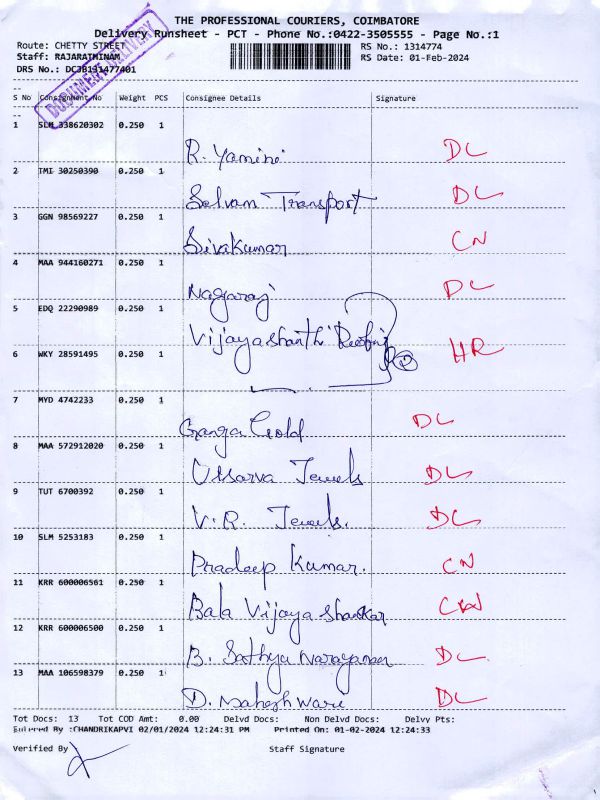 THE PROFESSIONAL COURIERS, COIMBATORE
Delivery Runsheet - PCT - Phone No.:0422-3505555 - Page No.:1
Route: CHETTY STREET RS No.: 1314774
Staff: RAJARATHINAM RS Date: 01-Feb-2024
DRS No.: DCJB131477401
DOCUMENT DELIVERY
S No Consignment No Weight PCS Consignee Details Signature
1 SLM 338620302 0.250 1
R. Yamini DL
2 TMI 30250390 0.250 1
Selvam Transport DL
3 GGN 98569227 0.250 1
Sivakumar CN
4 MAA 944160271 0.250 1
Nagaraj DL
5 EDQ 22290989 0.250 1
Vijayashanthi Roofing HR
6 WKY 28591495 0.250 1
7 MYD 4742233 0.250 1
Ganga Gold DL
8 MAA 572912020 0.250 1
Utsarva Jewels DL
9 TUT 6700392 0.250 1
V.R. Jewels. DL
10 SLM 5253183 0.250 1
Pradeep Kumar. CN
11 KRR 600006561 0.250 1
Bala Vijaya Shankar CN
12 KRR 600006500 0.250 1
B. Sathya Narayanan DL
13 MAA 106598379 0.250 1
D. Maheshwari DL
Tot Docs: 13 Tot COD Amt: 0.00 Delvd Docs: Non Delvd Docs: Delvy Pts:
Entered By :CHANDRIKAPVI 02/01/2024 12:24:31 PM Printed On: 01-02-2024 12:24:33
Verified By Staff Signature